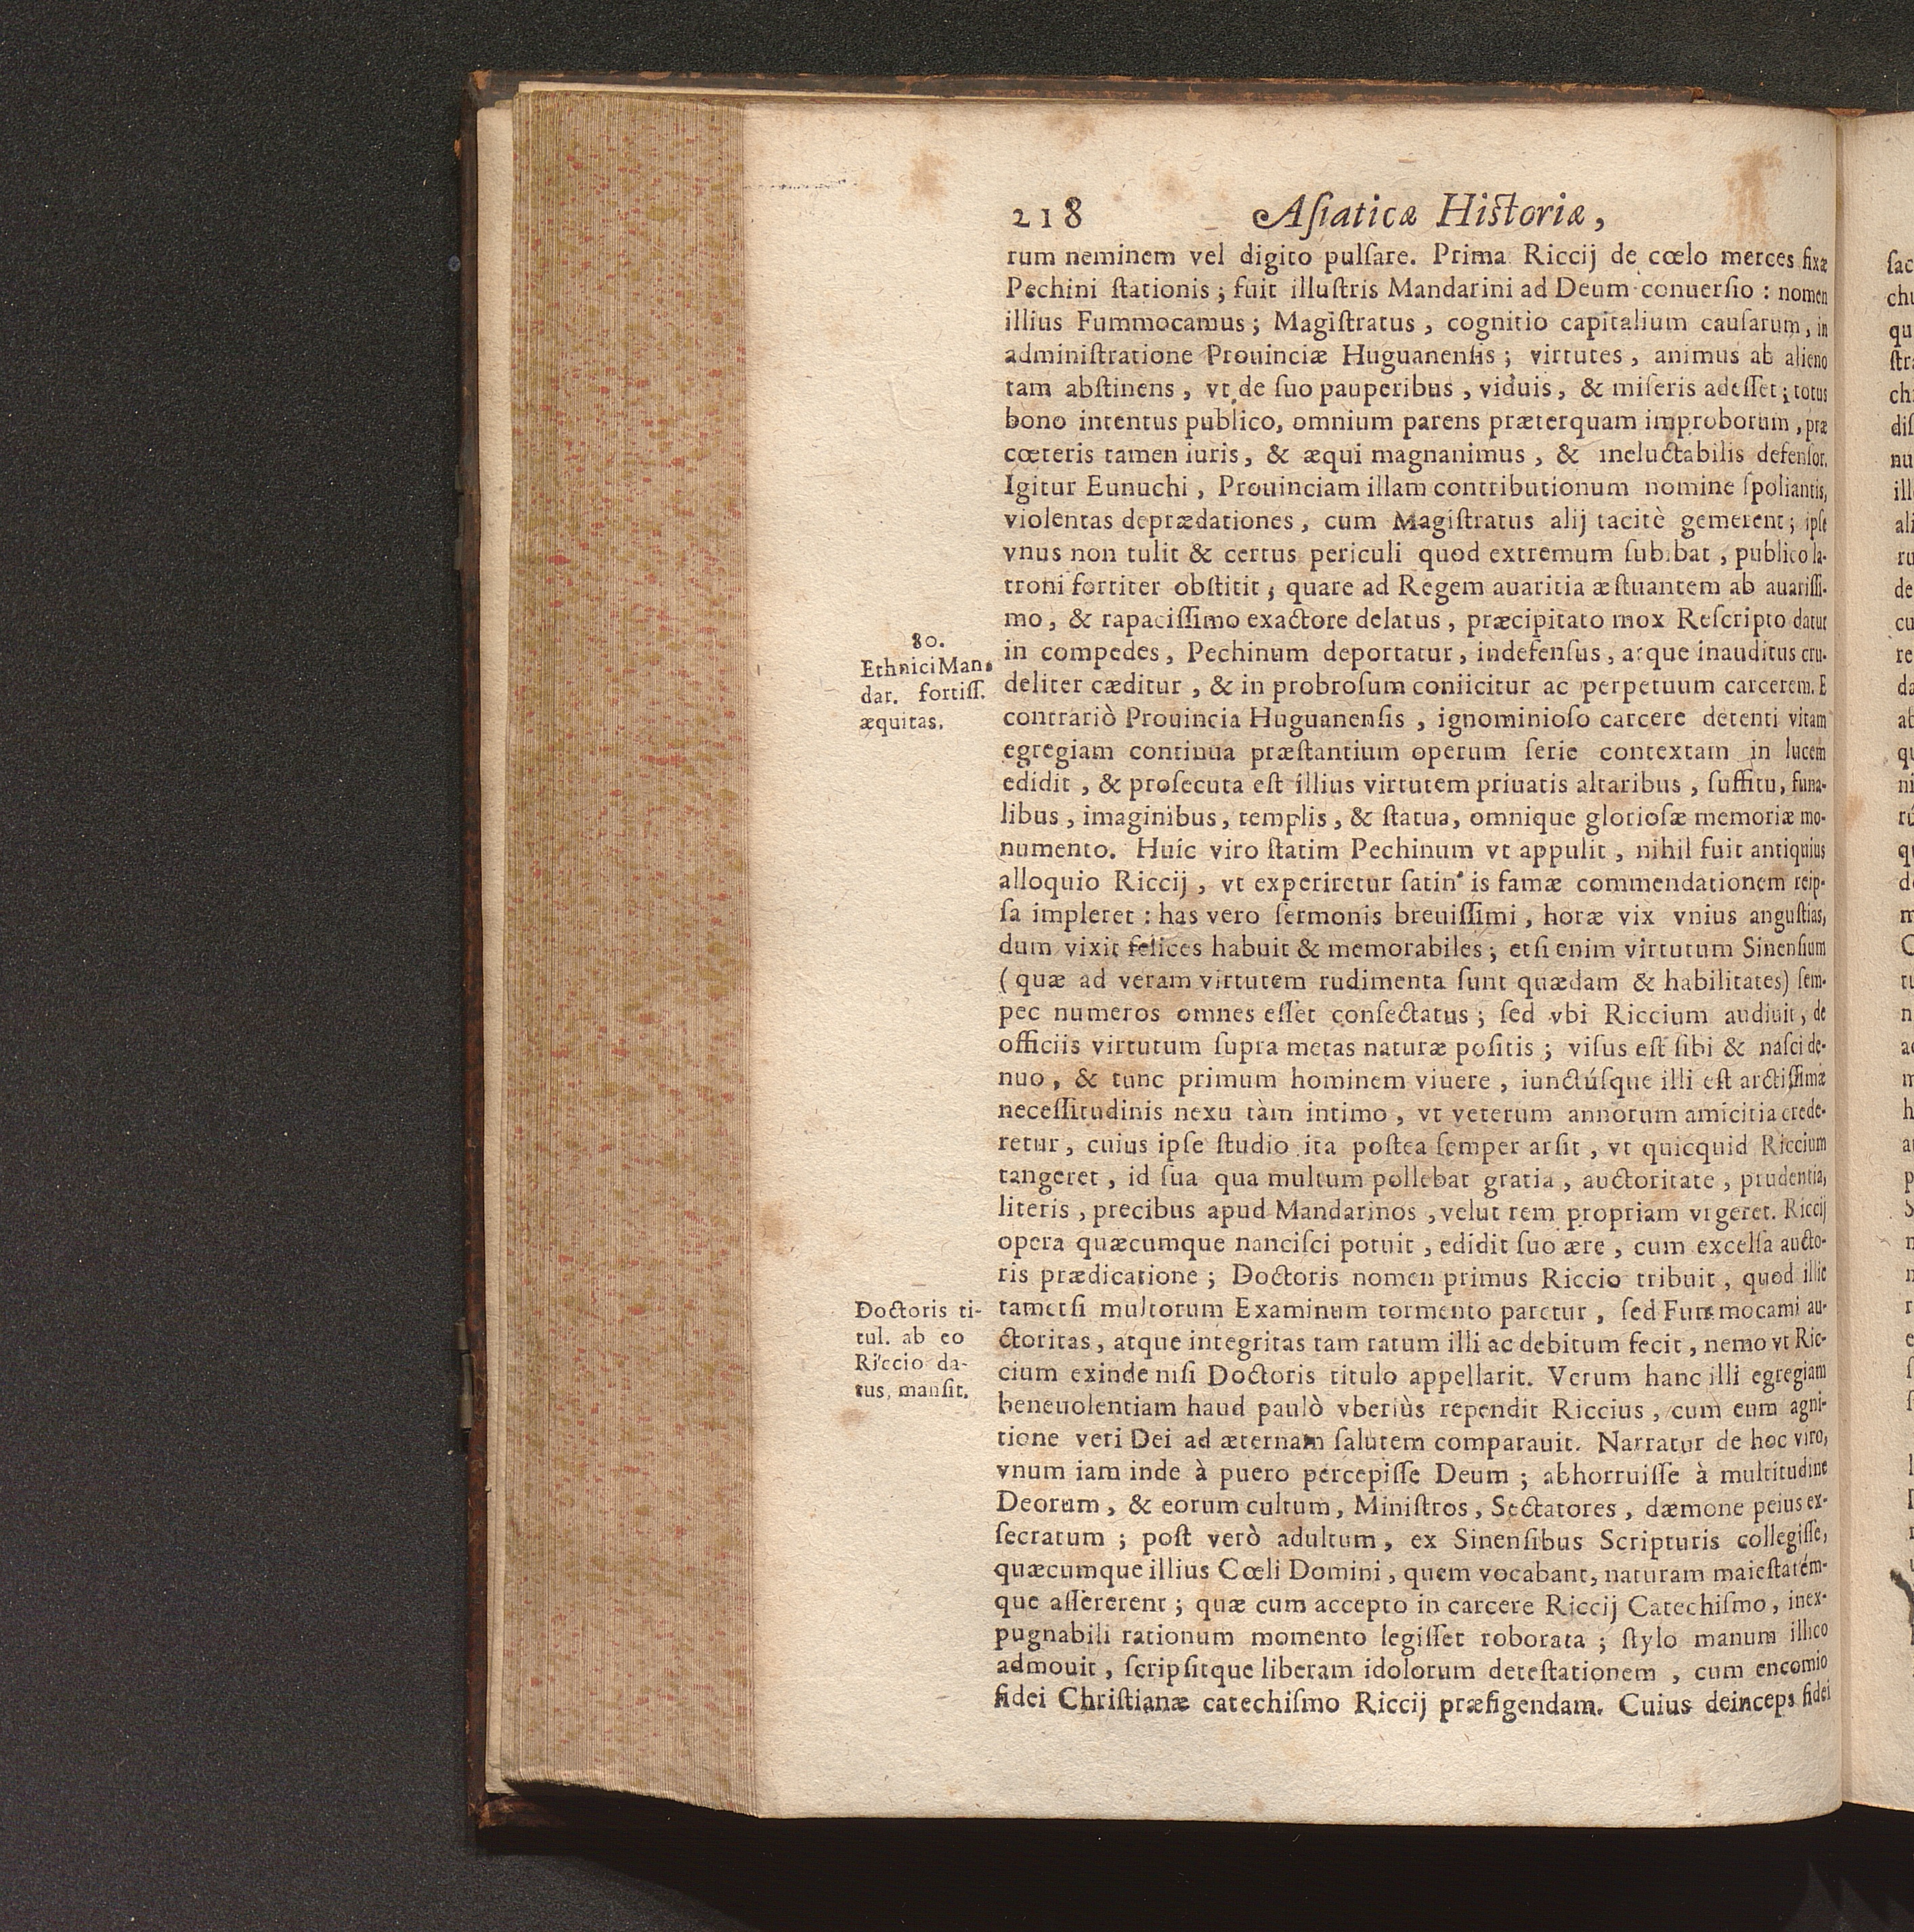 218 Aſiaticæ Hiſtoriæ,
rum neminem vel digito pulſare. Prima Riccij de cœlo merces fixæ
Pechini ſtationis; fuit illuſtris Mandarini ad Deum conuerſio: nomen
illius Fummocamus; Magiſtratus, cognitio capitalium cauſarum, in
adminiſtratione Prouinciæ Huguanenſis; virtutes, animus ab alieno
tam abſtinens, vt de ſuo pauperibus, viduis, & miſeris adeſſet; totus
bono intentus publico, omnium parens præterquam improborum, præ
cœteris tamen iuris, & æqui magnanimus, & ineluctabilis defenſor.
Igitur Eunuchi, Prouinciam illam contributionum nomine ſpoliantis,
violentas deprædationes, cum Magiſtratus alij tacitè gemerent; ipſe
vnus non tulit & certus periculi quod extremum ſubibat, publico la-
troni fortiter obſtitit; quare ad Regem auaritia æſtuantem ab auariſſi-
mo, & rapaciſſimo exactore delatus, præcipitato mox Reſcripto datur
in compedes, Pechinum deportatur, indefenſus, atque inauditus cru-
deliter cæditur, & in probroſum coniicitur ac perpetuum carcerem. E
contrariò Prouincia Huguanenſis, ignominioſo carcere detenti vitam
egregiam continua præſtantium operum ſerie contextam in lucem
edidit, & proſecuta eſt illius virtutem priuatis altaribus, ſuffitu, funa-
libus, imaginibus, templis, & ſtatua, omnique glorioſæ memoriæ mo-
numento. Huic viro ſtatim Pechinum vt appulit, nihil fuit antiquius
alloquio Riccij, vt experiretur ſatin' is famæ commendationem reip-
ſa impleret: has vero ſermonis breuiſſimi, horæ vix vnius anguſtias,
dum vixit felices habuit & memorabiles; etſi enim virtutum Sinenſium
(quæ ad veram virtutem rudimenta ſunt quædam & habilitates) ſem-
pec numeros omnes eſſet conſectatus; ſed vbi Riccium audiuit, de
officiis virtutum ſupra metas naturæ poſitis; viſus eſt ſibi & naſci de-
nuo, & tunc primum hominem viuere, iunctúſque illi eſt arctiſſimæ
neceſſitudinis nexu tàm intimo, vt veterum annorum amicitia crede-
retur, cuius ipſe ſtudio ita poſtea ſemper arſit, vt quicquid Riccium
tangeret, id ſua qua multum pollebat gratia, auctoritate, prudentia,
literis, precibus apud Mandarinos, velut rem propriam vrgeret. Riccij
opera quæcumque nanciſci potuit, edidit ſuo ære, cum excelſa aucto-
ris prædicatione; Doctoris nomen primus Riccio tribuit, quod illic
tametſi multorum Examinum tormento paretur, ſed Fummocami au-
ctoritas, atque integritas tam ratum illi ac debitum fecit, nemo vt Ric-
cium exinde niſi Doctoris titulo appellarit. Verum hanc illi egregiam
beneuolentiam haud paulò vberiùs rependit Riccius, cum eum agni-
tione veri Dei ad æternam ſalutem comparauit. Narratur de hoc viro,
vnum iam inde à puero percepiſſe Deum; abhorruiſſe à multitudine
Deorum, & eorum cultum, Miniſtros, Sectatores, dæmone peius ex-
ſecratum; poſt verò adultum, ex Sinenſibus Scripturis collegiſſe,
quæcumque illius Cœli Domini, quem vocabant, naturam maieſtatém-
que aſſererent; quæ cum accepto in carcere Riccij Catechiſmo, inex-
pugnabili rationum momento legiſſet roborata; ſtylo manum illico
admouit, ſcripſitque liberam idolorum deteſtationem, cum encomio
fidei Chriſtianæ catechiſmo Riccij præfigendam. Cuius deinceps fidei
80.
Ethnici Man-
dar. fortiſſ.
æquitas.
Doctoris ti-
tul. ab eo
Riccio da-
tus, manſit.